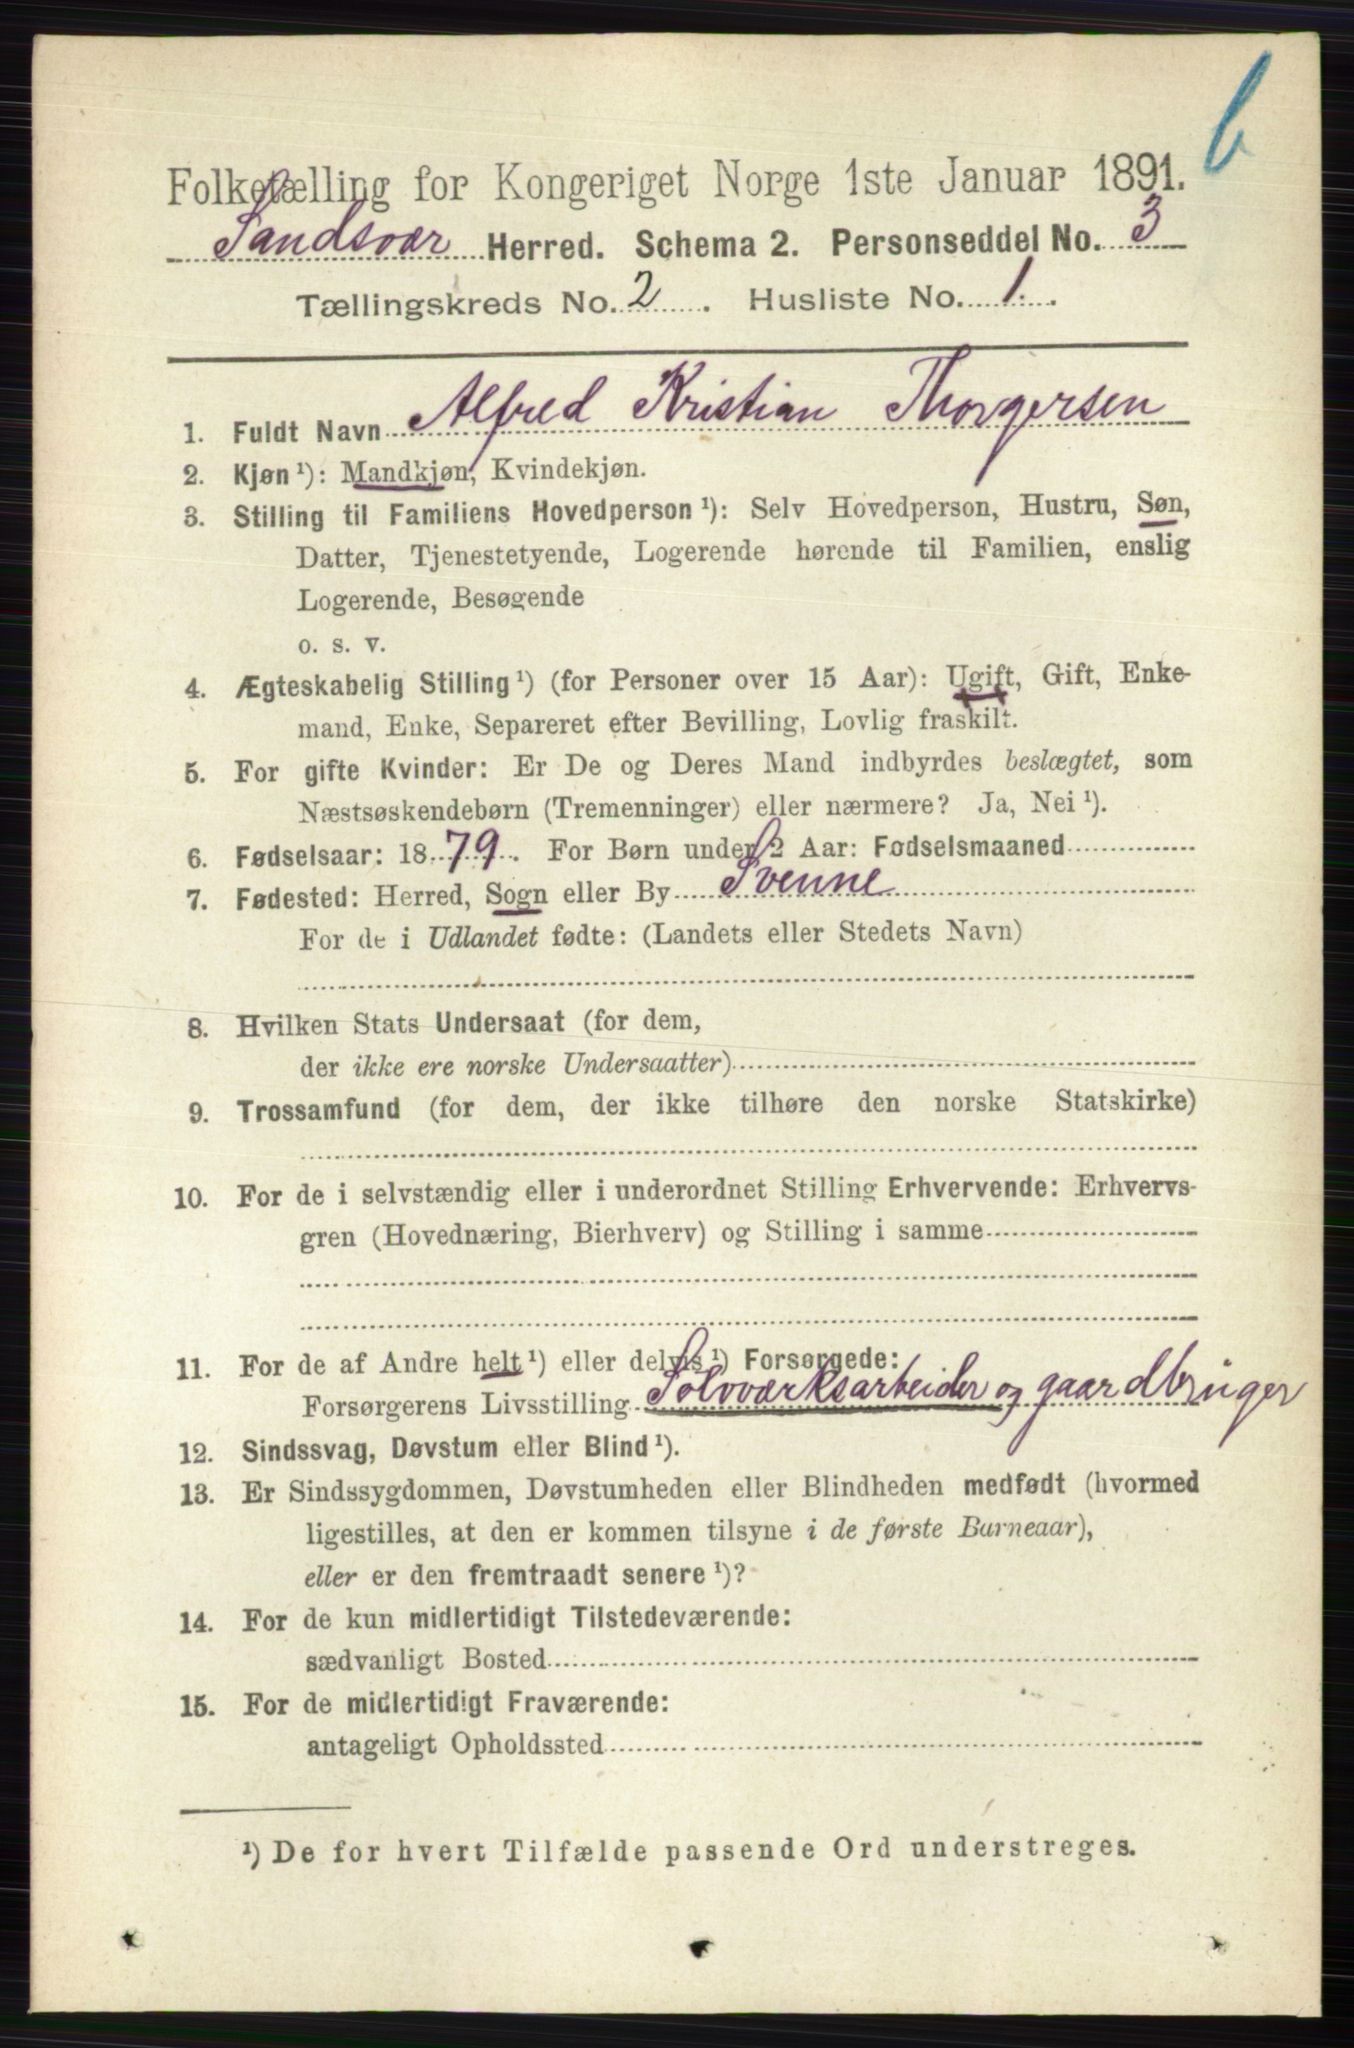 b
Folketælling for Kongeriget Norge 1ste Januar 1891.
Sandsvær Herred. Schema 2. Personseddel No. 3
Tællingskreds No. 2. Husliste No. 1.
1. Fuldt Navn Alfred Kristian Thorgersen
2. Kjøn ¹): Mandkjøn, Kvindekjøn.
3. Stilling til Familiens Hovedperson ¹): Selv Hovedperson, Hustru, Søn,
Datter, Tjenestetyende, Logerende hørende til Familien, enslig
Logerende, Besøgende
o. s. v.
4. Ægteskabelig Stilling ¹) (for Personer over 15 Aar): Ugift, Gift, Enke-
mand, Enke, Separeret efter Bevilling, Lovlig fraskilt.
5. For gifte Kvinder: Er De og Deres Mand indbyrdes beslægtet, som
Næstsøskendebørn (Tremenninger) eller nærmere? Ja, Nei ¹).
6. Fødselsaar: 1879. For Børn under 2 Aar: Fødselsmaaned
7. Fødested: Herred, Sogn eller By Svenne
For de i Udlandet fødte: (Landets eller Stedets Navn)
8. Hvilken Stats Undersaat (for dem,
der ikke ere norske Undersaatter)
9. Trossamfund (for dem, der ikke tilhøre den norske Statskirke)
10. For de i selvstændig eller i underordnet Stilling Erhvervende: Erhvervs-
gren (Hovednæring, Bierhverv) og Stilling i samme
11. For de af Andre helt ¹) eller delvis ¹) Forsørgede:
Forsørgerens Livsstilling Sølvværksarbeider og gaardbruger
12. Sindssvag, Døvstum eller Blind ¹).
13. Er Sindssygdommen, Døvstumheden eller Blindheden medfødt (hvormed
ligestilles, at den er kommen tilsyne i de første Barneaar),
eller er den fremtraadt senere ¹)?
14. For de kun midlertidigt Tilstedeværende:
sædvanligt Bosted
15. For de midlertidigt Fraværende:
antageligt Opholdssted
¹) De for hvert Tilfælde passende Ord understreges.